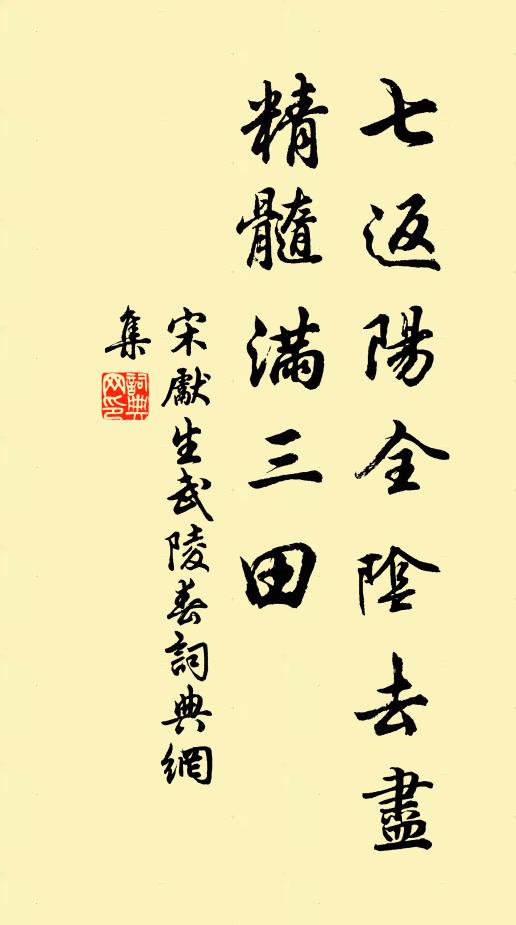 七返陽全陰去盡
精髓滿三田
宋獻生武陵春詞典網
集
詞典
网印